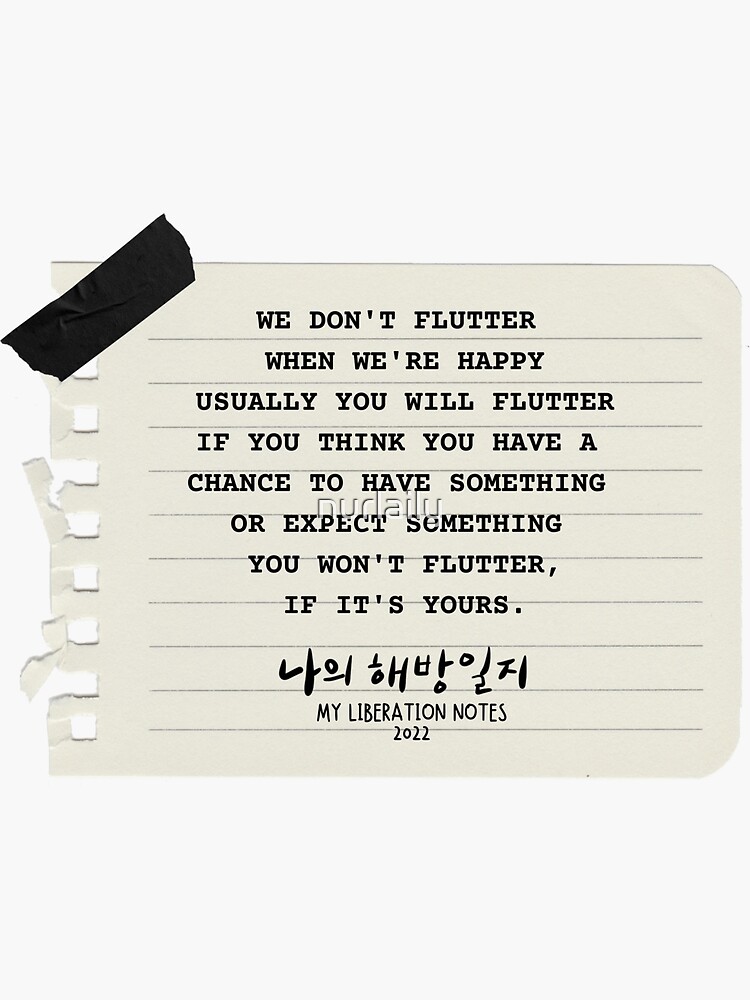 WE DON'T FLUTTER
WHEN WE'RE HAPPY
USUALLY YOU WILL FLUTTER
IF YOU THINK YOU HAVE A
CHANCE TO HAVE SOMETHING
nudaily
OR EXPECT SOMETHING
YOU WON'T FLUTTER,
IF IT'S YOURS.
나의 해방일지
MY LIBERATION NOTES
2022